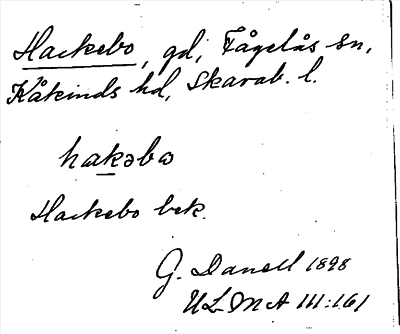 Hackebo, gd, Fågelås sn,
Kåkinds hd, Skarab. l.
hakəbω
Hackebo bek.
G. Danell 1898
ULMA 111:161